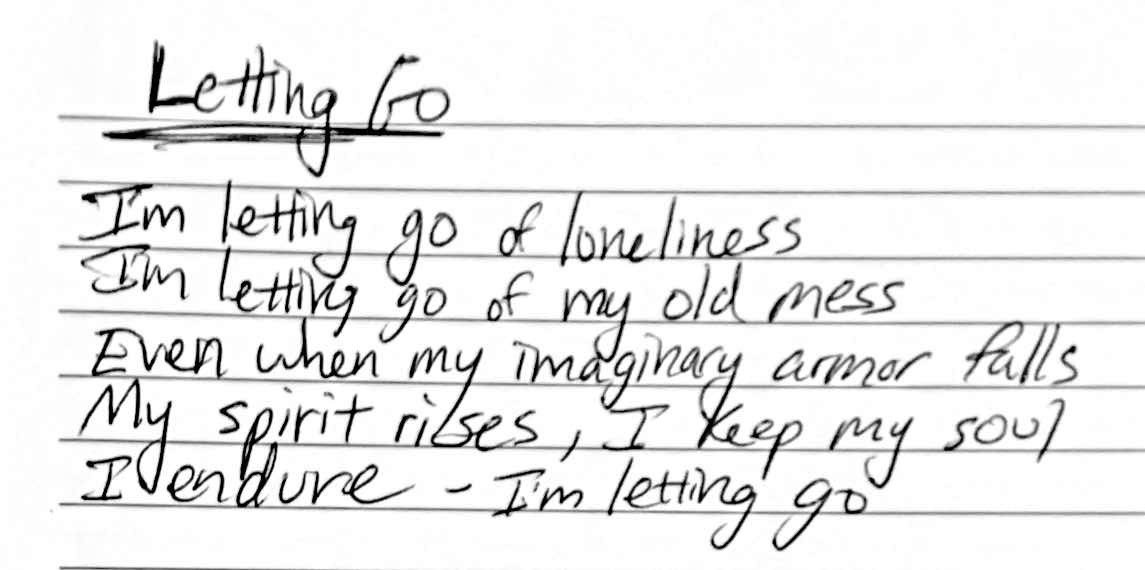 Letting Go
Im letting go of loneliness
I'm letting go of my old mess
Even when my imaginary armor falls
My spirit rises, I keep my soul
I endure - I'm letting go